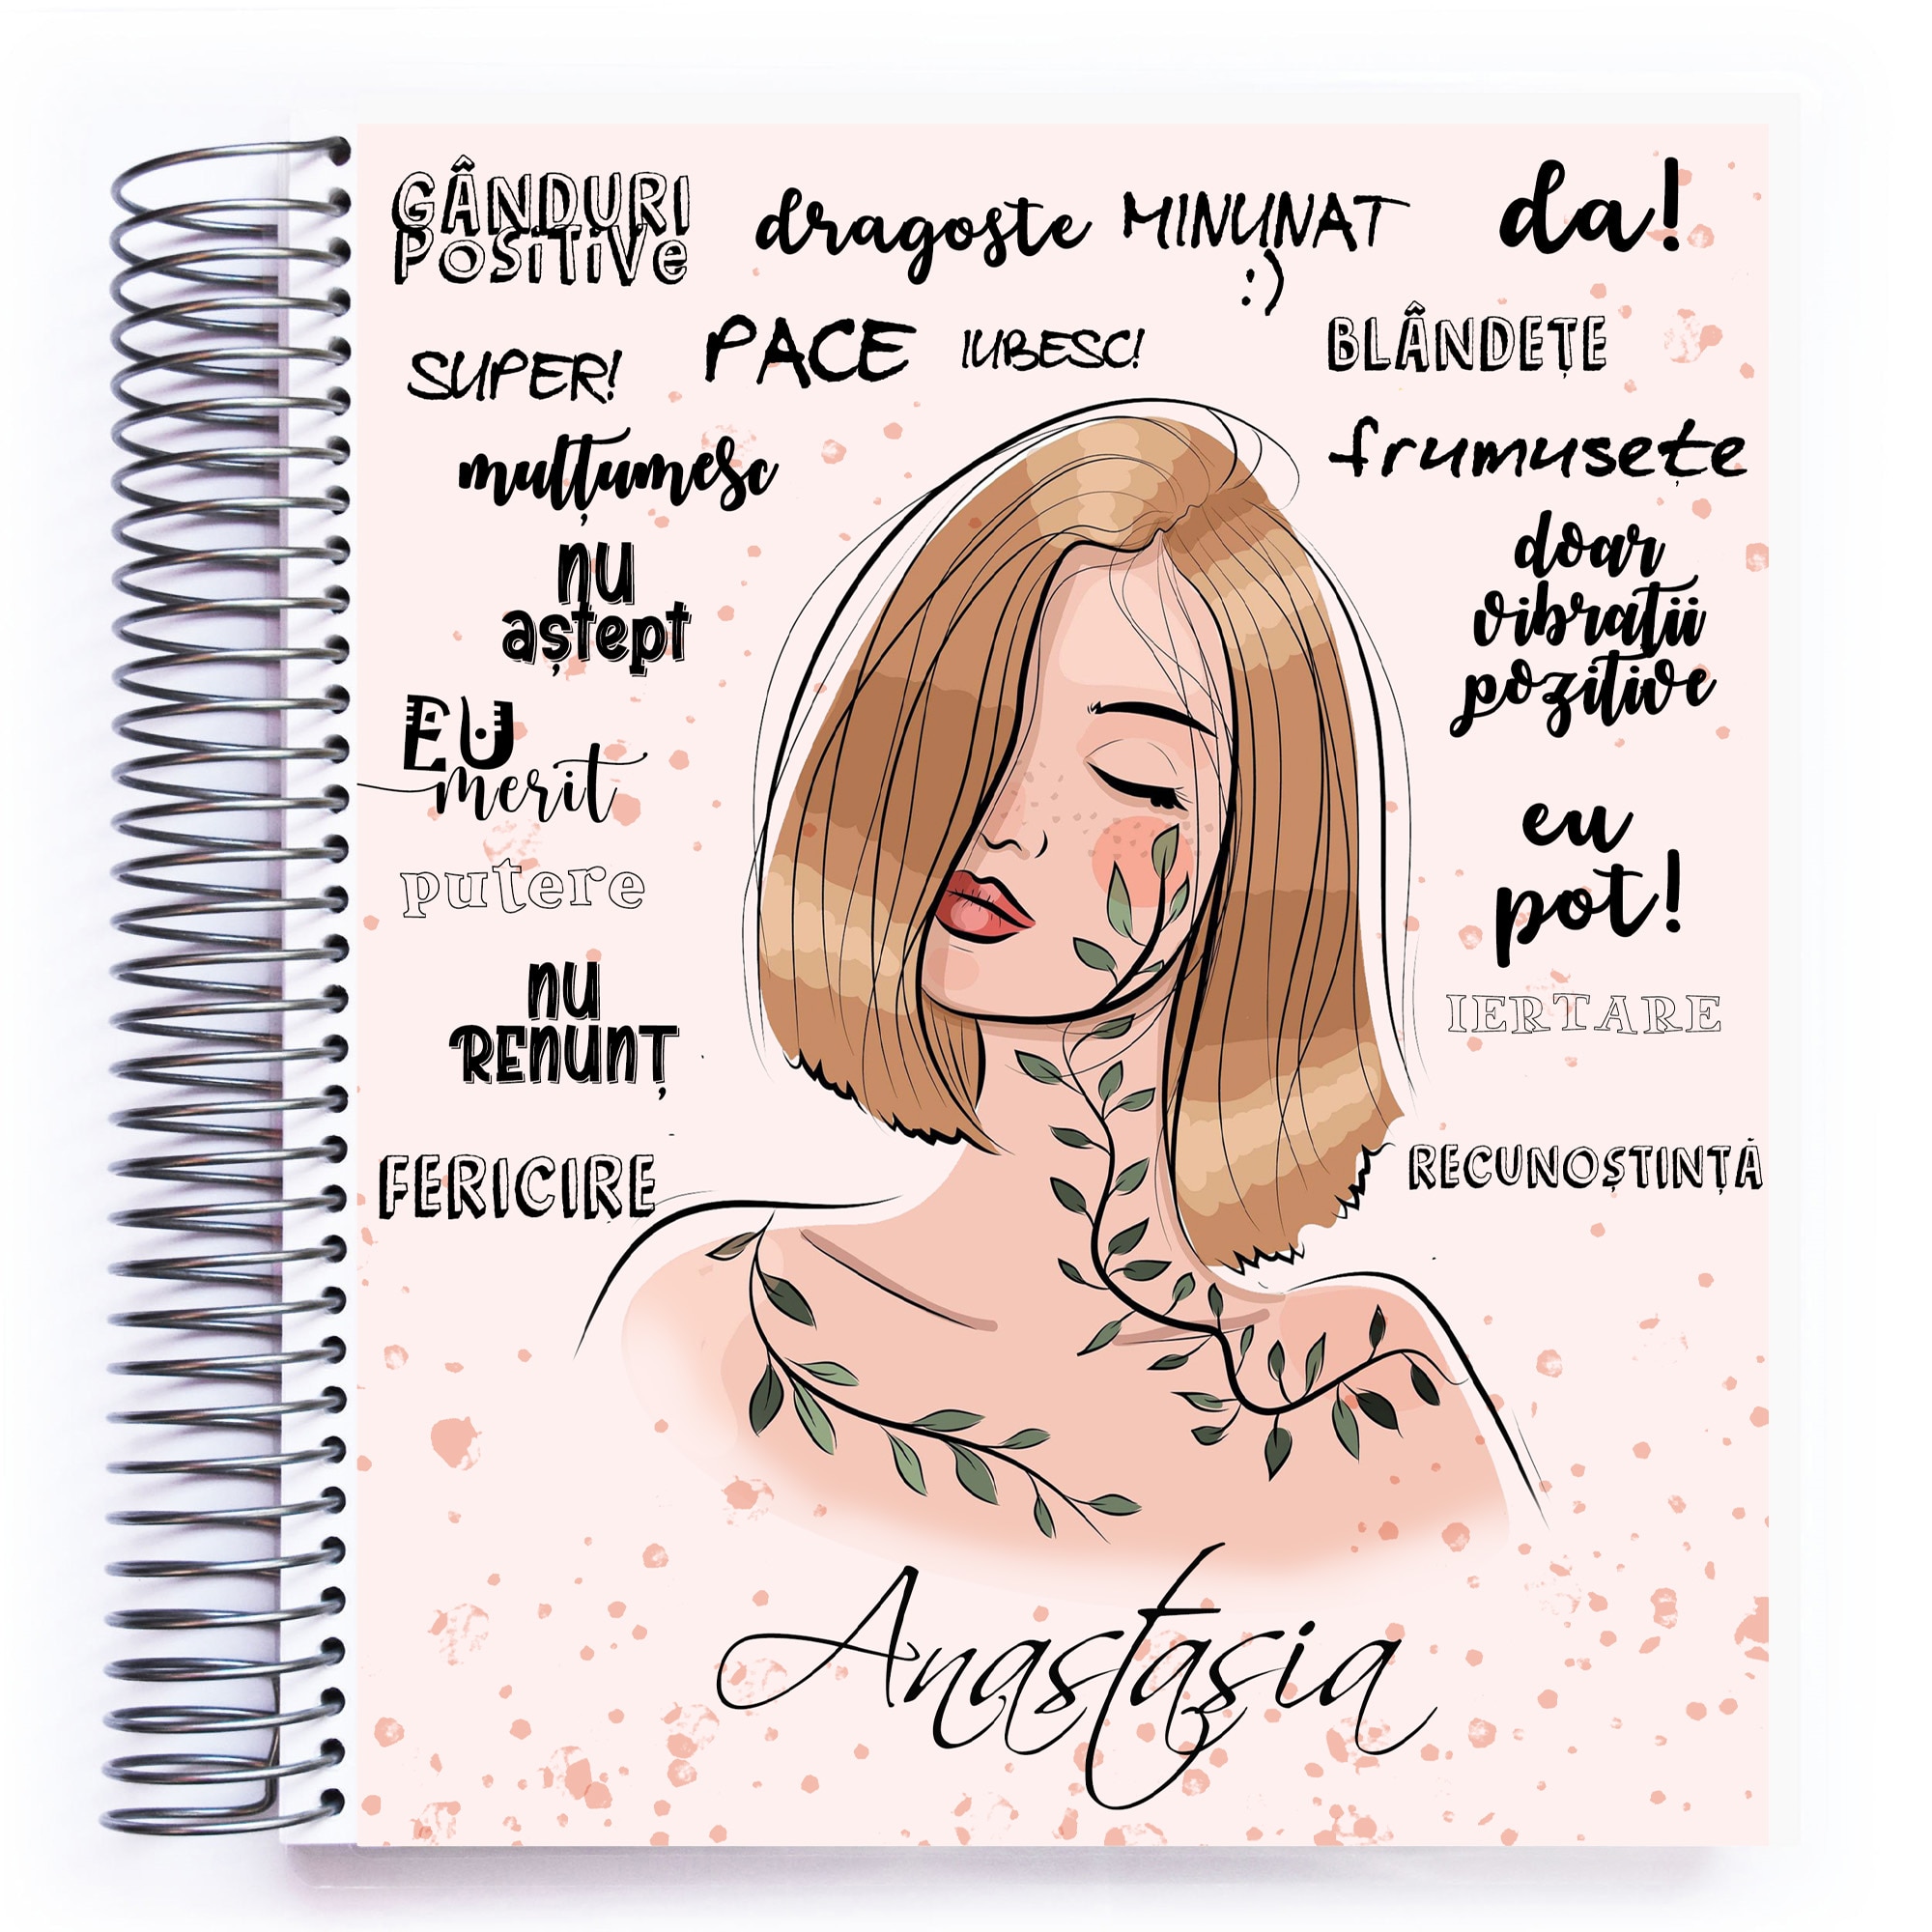 GÂNDURI
POSITIVE
dragoste
MINUNAT
:)
da!
SUPER!
PACE
IUBESC!
BLÂNDEȚE
mulțumesc
frumusețe
nu
aștept
doar
vibrații
pozitive
EU
merit
eu
pot!
putere
nu
RENUNȚ
IERTARE
FERICIRE
RECUNOȘTINȚĂ
Anastasia